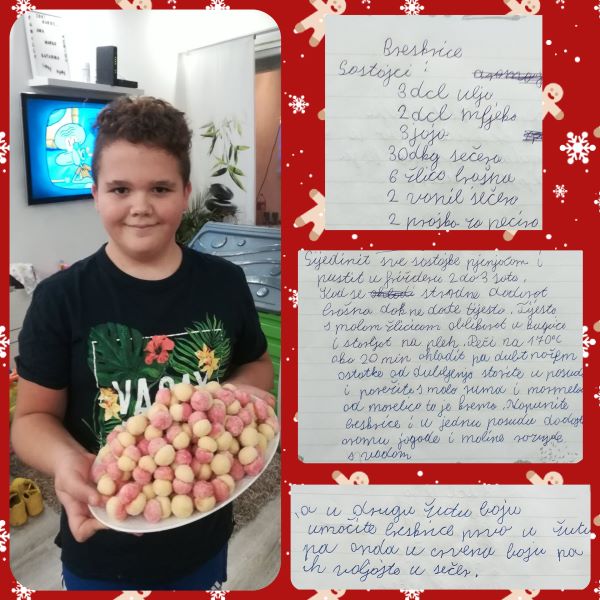 VACAY
Breskvice
Sostojci :
3 dcl ulja
2 dcl mljeka
3 jaja
30 dkg sečera
6 žlica brašna
2 vanil sečera
2 praška za pecivo
Sijedinit sve sostojke pjenjačom i
pustit u frižideru 2 do 3 sata.
Kad se stvrdne dodavat
brašna dok ne dode tijesto. Tijesto
s malom žlicicom oblikovat u kuglice
i stavljat na pleh. Peči na 170°C
oko 20 min ohladit pa dubit nožem
ostatke od dubljenja stavite u posudu
i pomešite s malo ruma i marmelade
od marelica to je krema. Napunite
breskvice i u jednu posudu dodajte
aromu jagode i maline
s vodom
a u drugu žutu boju
umočite breskvice prvo u žutu
pa onda u crvenu boju pa
ih valjajte u sečer.